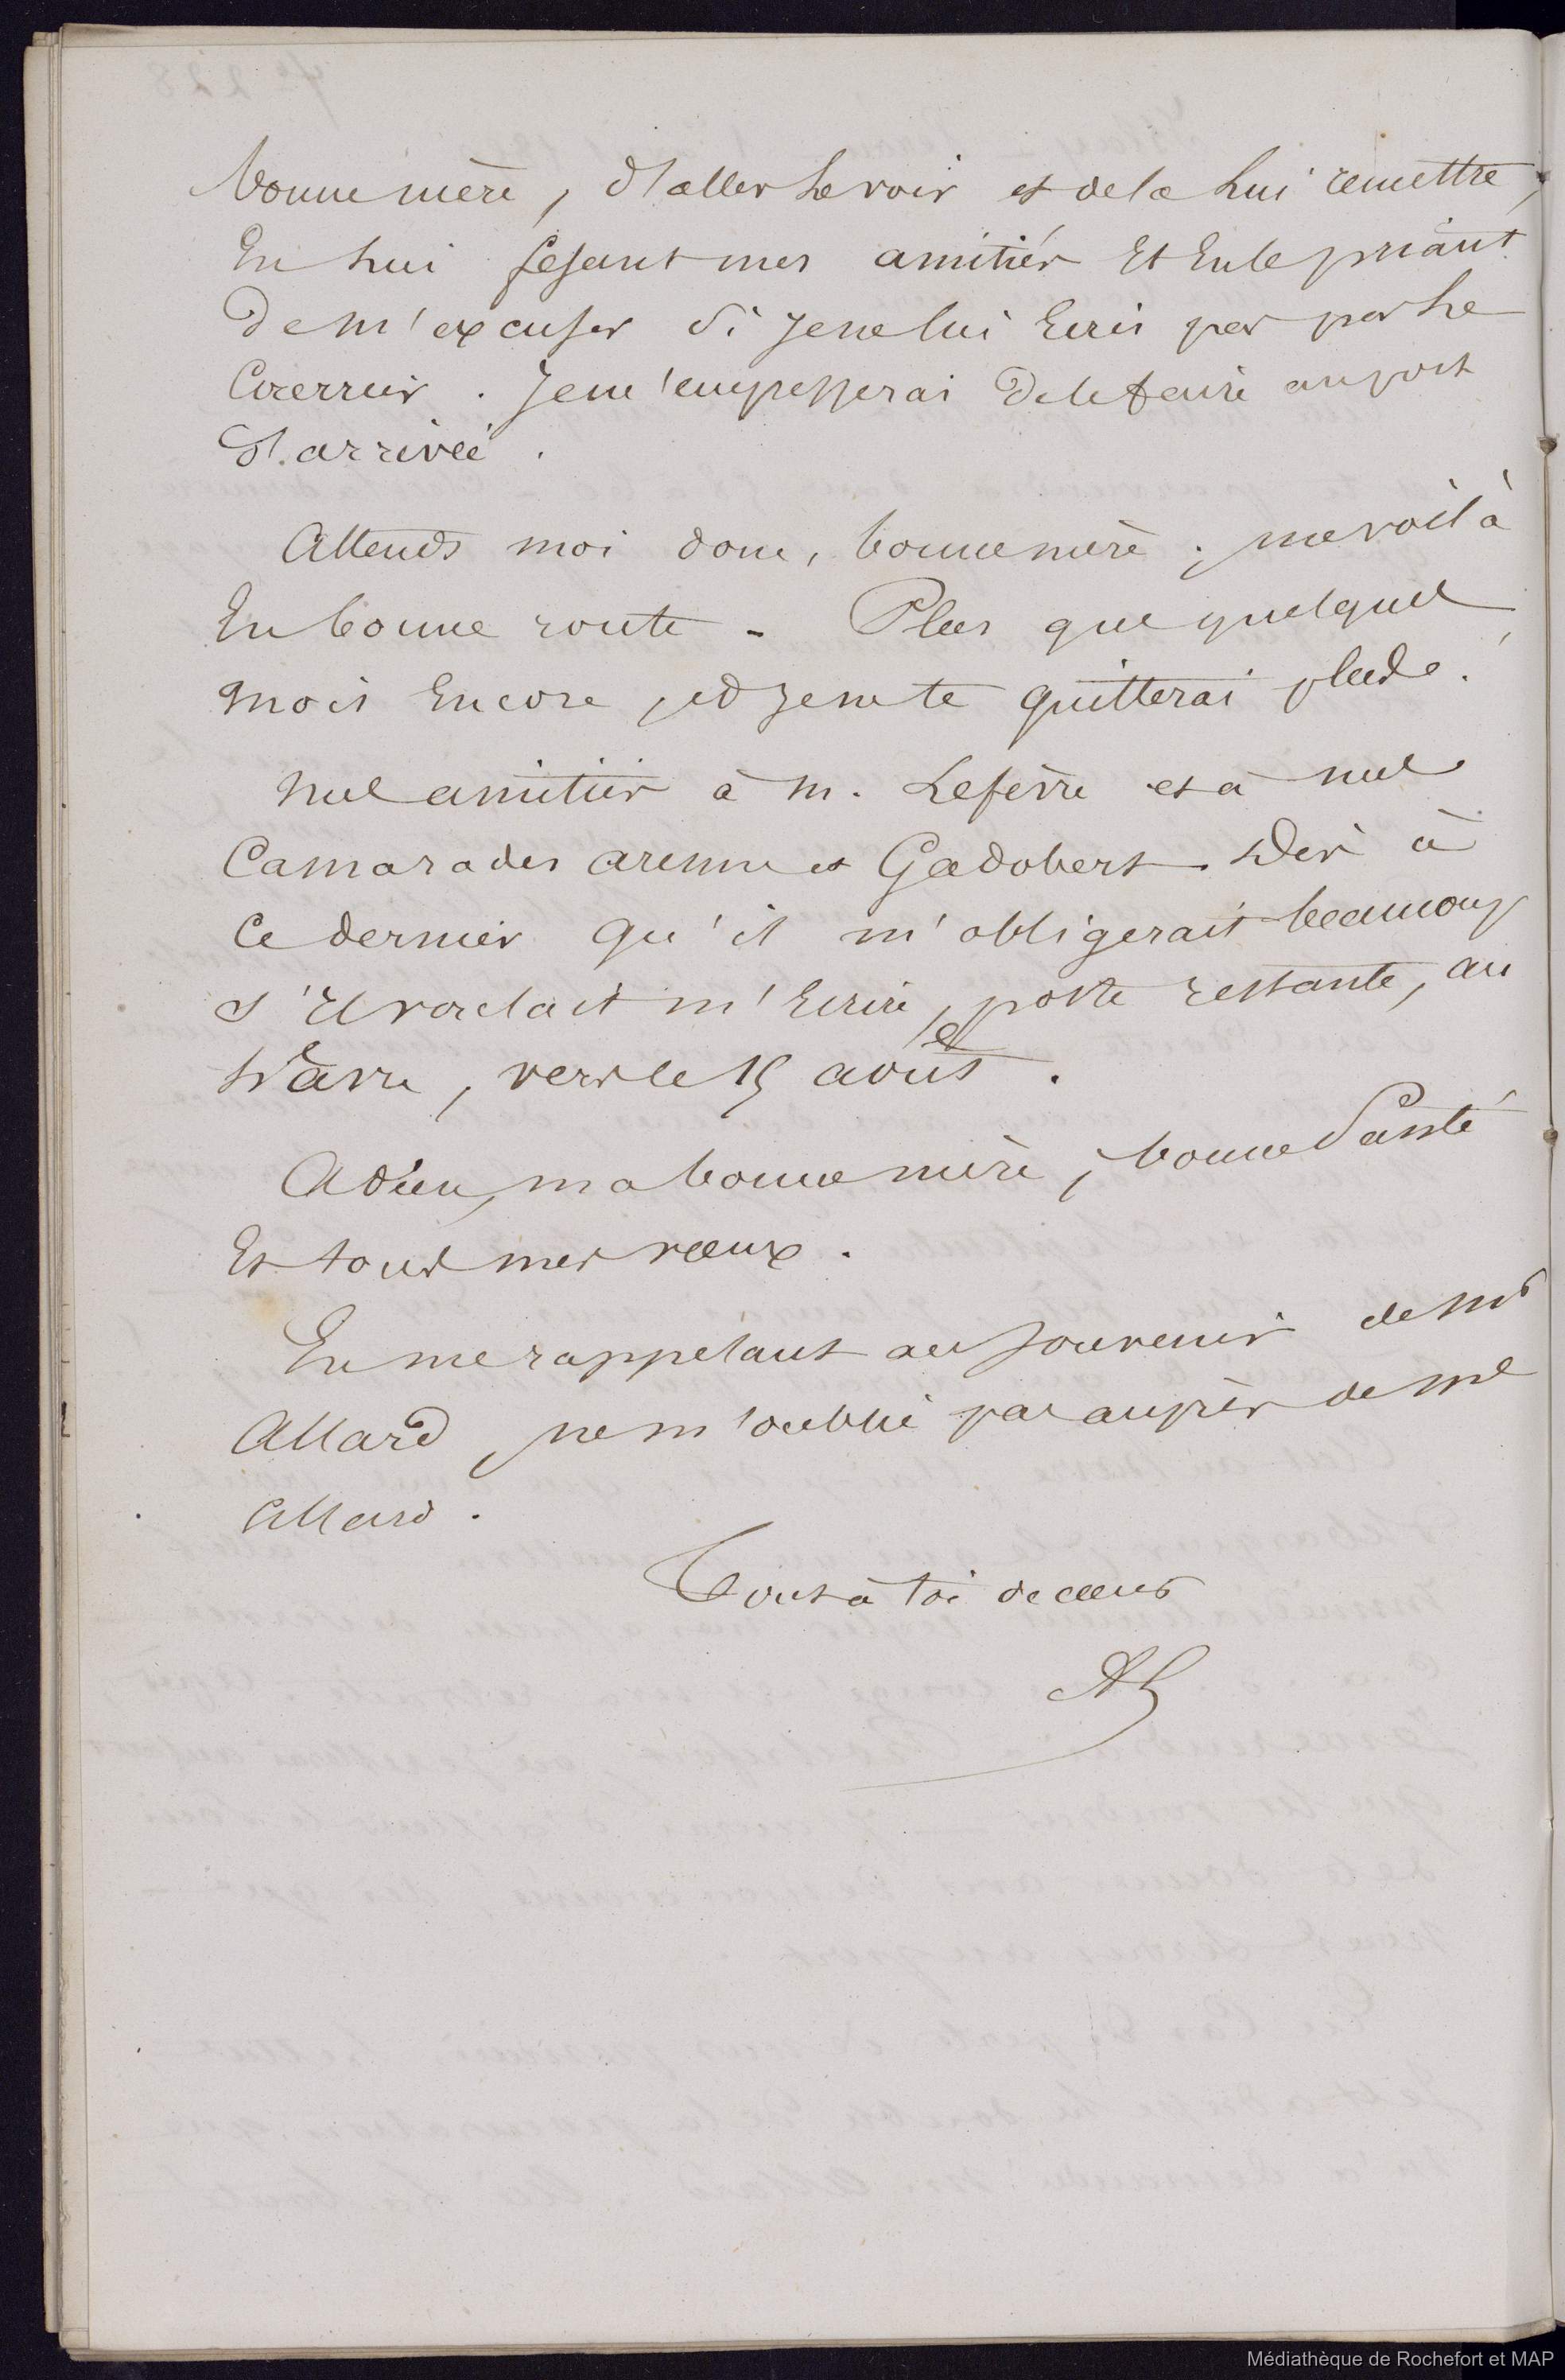 bonne mère, d'aller le voir et de la lui remettre,
En lui fesant mes amitiés Et En le priant
De m'excuser si je ne lui Ecris pas par ce
Courrier. Je m'empesserai De le faire au port
d'arrivée.
Attends moi donc, bonne mère ; me voilà
En bonne route - Plus que quelques
mois Encore, et je ne te quitterai plus.
Mes amitiés à M. Lefèvre et à mes
Camarades et Gadobert. Dis à
Ce dernier qu'il m'obligerait beaucoup
s'il voulait m'Ecrire, poste restante, au
Hàvre, vers le 15 août.
Adieu, ma bonne mère ; bonne Santé
Et tous mes vœux.
En me rappelant au souvenir de Mr
Allard, ne m'oublie pas auprès de Me
Allard.
Tout à toi de cœur